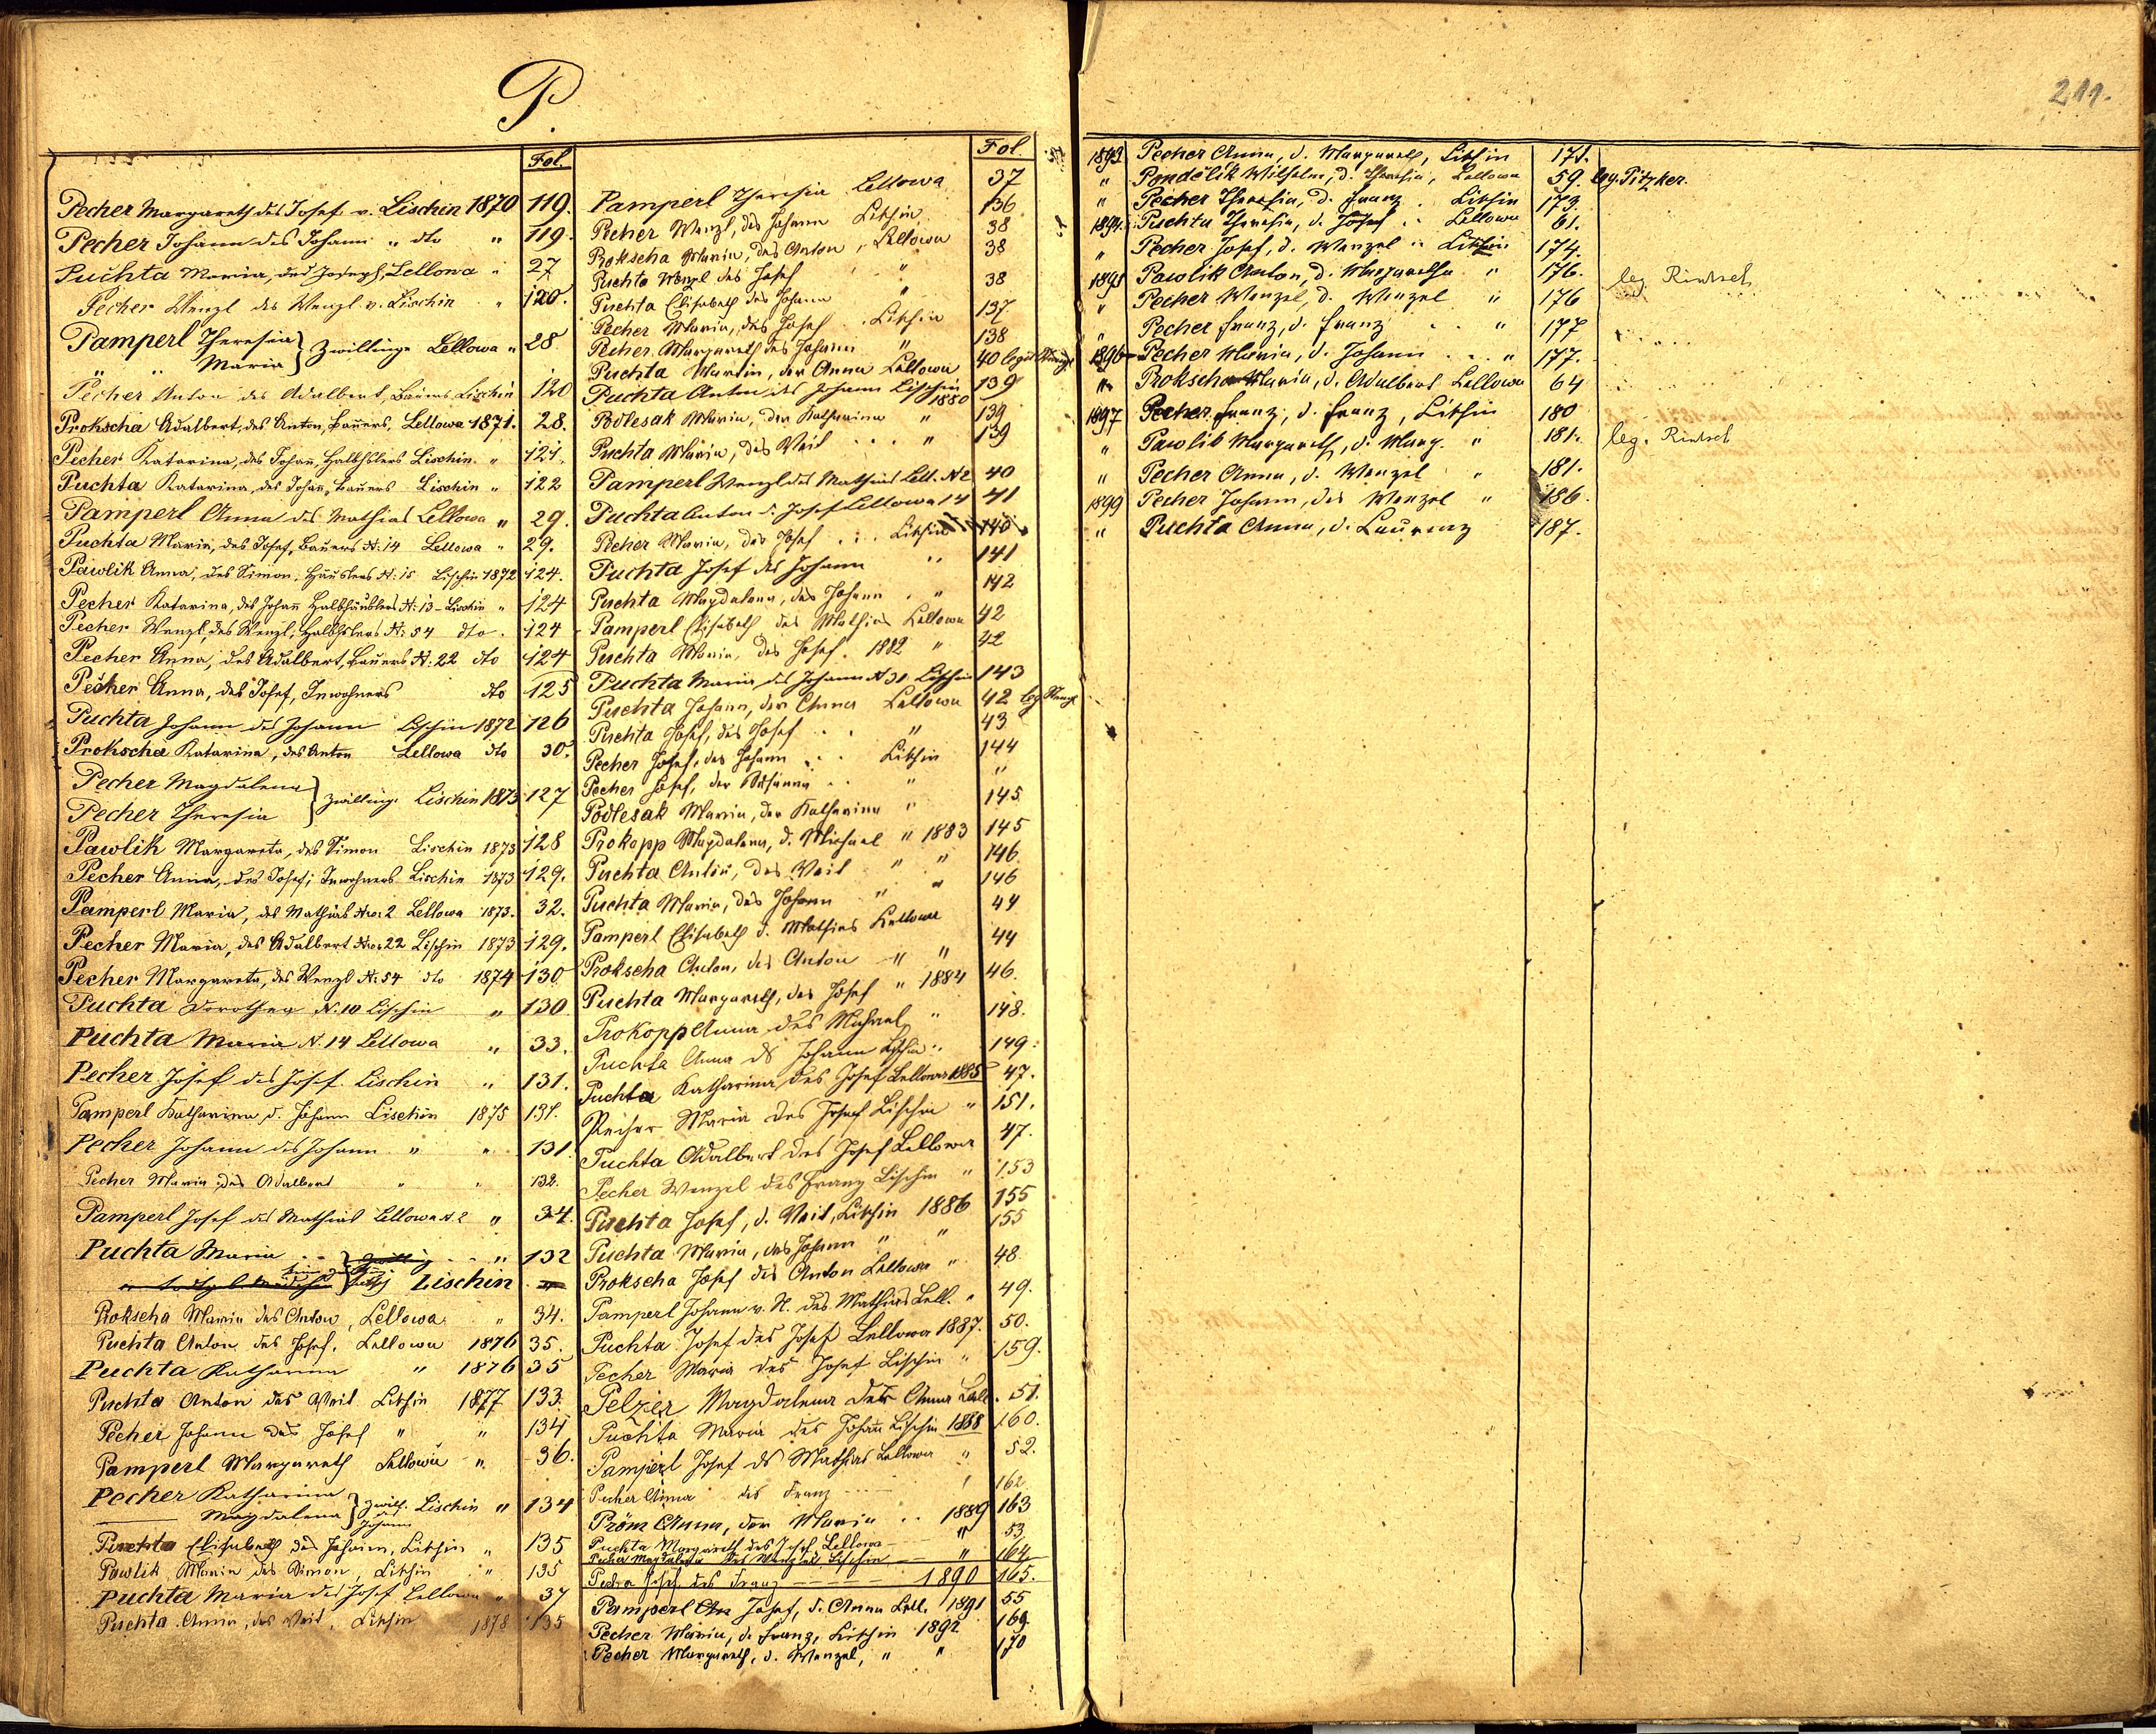 P.
211.
Fol.
Pecher Margareth des Josef v. Lischin 1870 119.
Pecher Johann des Johann " dto " 119.
Puchta Maria, des Joseph, Lellowa " 27
Pecher Wenzl des Wenzl v. Lischin " 120.
Pamperl Theresia } Zwillinge Lellowa " 28
" Maria
Pecher Anton des Adalbert, Bauers Lischin 120
Prokscha Adalbert, des Anton, Bauers, Lellowa 1871. 28.
Pecher Katarina, des Johañ, Halbhslers Lischin " 121.
Puchta Katarina, des Johañ, Bauers Lischin " 122
Pamperl Anna des Mathias Lellowa " 29.
Puchta Maria, des Josef, Bauers N: 14 Lellowa " 29.
Pawlik Anna, des Simon, Häuslers N: 15 Lischin 1872 124.
Pecher Katarina, des Johañ Halbhäuslers N: 13 - Lischin " 124
Pecher Wenzl, des Wenzl, Halbhslers N: 54 dto 124
Pecher Anna, des Adalbert, Bauers N: 22 dto 124
Pecher Anna, des Josef, Inwohners dto 125
Puchta Johann des Johann Lischin 1872 126
Prokscha Katarina, des Anton Lellowa dto 30.
Pecher Magdalena } Zwillinge Lischin 1873 127
Pecher Theresia
Pawlik Margareta, des Simon Lischin 1873 128
Pecher Anna, des Josef, Inwohners Lischin 1873 129.
Pamperl Maria, des Mathias Nro: 2 Lellowa 1873. 32.
Pecher Maria, des Adalbert Nro: 22 Lischin 1873 129.
Pecher Margareta, des Wenzl N: 54 dto 1874 130
Puchta Dorothea N: 10 Lischin " 130
Puchta Maria N. 14 Lellowa " 33.
Pecher Josef des Josef Lischin " 131.
Pamperl Katharina d. Johann Lischin 1875 131.
Pecher Johann des Johann " " 131
Pecher Maria des Adalbert " " 132.
Pamperl Josef des Mathias Lellowa N 2 " 34.
Puchta Maria " 132
Lischin
Prokscha Maria des Anton, Lellowa " 34.
Puchta Anton des Josef, Lellowa 1876 35.
Puchta Katharina " 1876 35
Puchta Anton des Veit Litschin 1877 133.
Pecher Johann des Josef " " 134
Pamperl Margareth Lellowa " 36.
Pecher Katharina } Zwill. Lischin " 134
Magdalena } des Johann
Puchta Elisabeth des Johann, Litschin " 135
Pawlik Maria des Simon, Litschin " 135
Puchta Maria des Josef Lellowa " 37
Puchta Anna, des Veit, Litschin 1878 135
Fol.
Pamperl Theresia Lellowa 37
Pecher Wenzl, des Johann Litschin 136
Prokscha Maria, des Anton, Lellowa 38
Puchta Wenzl des Josef " 38
Puchta Elisabeth des Johann " 38
Pecher Maria, des Josef Litschin 137
Pecher Margareth des Johann " 138
Puchta Martin, der Anna Lellowa 40
Puchta Anton des Johann Lischin 1880 139
Podlesak Maria, der Katharina " 139
Puchta Maria, des Veit " 139
Pamperl Wenzl des Mathias Lell. N 2 40
Puchta Anton d. Josef Lellowa 14 41
Pecher Maria, des Josef Litschin 140
Puchta Josef des Johann " 141
Puchta Magdalena, des Johann " 142
Pamperl Elisabeth des Mathias Lellowa 42
Puchta Maria, des Josef. 1882 " 42
Puchta Maria des Johann N 31 Lischin 143
Puchta Johann, der Anna Lellowa 42
Puchta Josef, des Josef " 43
Pecher Josef, des Johann Litschin 144
Pecher Josef, der " "
Podlesak Maria, der Katharina " 145
Prokopp Magdalena, d. Michael " 1883 145
Puchta Anton, des Veit " " 146
Puchta Maria, des Johann " " 146
Pamperl Elisabeth d. Mathias Lellowa 44
Prokscha Anton, des Anton " " 44
Puchta Margareth, des Josef " 1884 46.
Prokopp Anna des Michael " 148.
Puchta Anna ds Johann Lischin " 149.
Puchta Katharina des Josef Lellowa 1885 47.
Pecher Maria des Josef Lischin " 151.
Puchta Adalbert des Josef Lellowa 47.
Pecher Wenzel des Franz Lischin " 153
Puchta Josef, d. Veit, Litschin 1886 155
Puchta Maria, des Johann " " 155
Prokscha Josef des Anton Lellowa " 48.
Pamperl Johann v. N. des Mathias Lell. " 49.
Puchta Josef des Josef Lellowa 1887. 50.
Pecher Maria des Josef Lischin " 159.
Pelzer Magdalena der Anna Lell. 51.
Puchta Maria des Johañ Lischin 1888 160.
Pamperl Josef ds Mathias Lellowa " 52.
Pecher Anna des Franz " 162
Pröm Anna, der Maria 1889 163
Puchta Margareth des Josef Lellowa " 53
Pecher Magdalena des Wenzel Lischin " 164
Pecher Josef des Franz 1890 165.
Pamperl Josef, d. Anna Lell. 1891 55
Pecher Maria, d. Franz, Litschin 1892 169.
Pecher Margareth, d. Wenzel, " " 170
1893 Pecher Anna, d. Margareth, Litschin 171.
" Pondělik Wilhelm, d. Theresia, Lellowa 59. leg. Pitzker.
" Pecher Theresia, d. Franz Litschin 173.
1894 Puchta Theresia, d. Josef Lellowa 61.
" Pecher Josef, d. Wenzel " Litschin 174.
1895 Pawlik Anton, d. Margaretha " 176. leg. Rintsch
" Pecher Wenzel, d. Wenzel " 176
" Pecher Franz, d. Franz " 177
1896 Pecher Maria, d. Johann " 177.
" Prokscha Maria, d. Adalbert Lellowa 64
1897 Pecher Franz, d. Franz, Litschin 180
" Pawlik Margareth, d. Marg. " 181. leg. Rintsch
" Pecher Anna, d. Wenzel " 181.
1899 Pecher Johann, des Wenzel " 186.
" Puchta Anna, d. Laurenz 187.